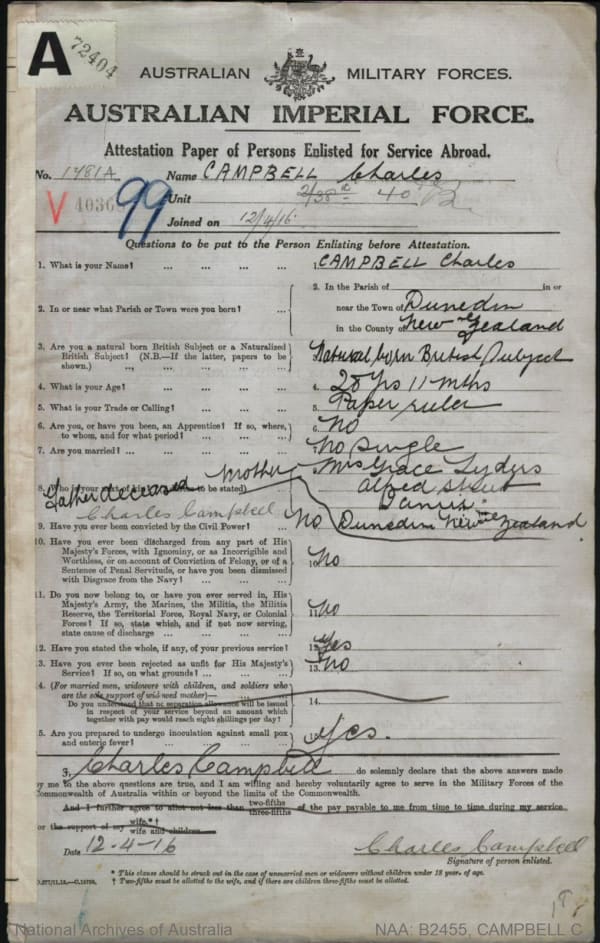 A 72404
AUSTRALIAN MILITARY FORCES.
AUSTRALIAN IMPERIAL FORCE.
Attestation Paper of Persons Enlisted for Service Abroad.
No. 1781A Name CAMPBELL Charles
V 99 Unit 2/38th 40
Joined on 12/4/16
Questions to be put to the Person Enlisting before Attestation.
1. What is your Name? ... ... ... 1. CAMPBELL Charles
2. In or near what Parish or Town were you born? ... 2. In the Parish of in or
near the Town of Dunedin
in the County of New Zealand
3. Are you a natural born British Subject or a Naturalized
British Subject? (N.B.—If the latter, papers to be
shown.) ... ... ... ... Natural born British Subject
4. What is your Age? ... ... ... 4. 28 yrs 11 mths
5. What is your Trade or Calling? ... ... ... 5. Paper ruler
6. Are you, or have you been, an Apprentice? If so, where,
to whom, and for what period? ... ... 6. No
7. Are you married? ... ... ... ... 7. No single
8. Who is your to be stated) mother Mrs Grace Lyders
Father deceased Alfred Street
Charles Campbell
9. Have you ever been convicted by the Civil Power? ... No Dunedin New Zealand
10. Have you ever been discharged from any part of His
Majesty's Forces, with Ignominy, or as Incorrigible and
Worthless, or on account of Conviction of Felony, or of a
Sentence of Penal Servitude, or have you been dismissed
with Disgrace from the Navy? ... ... ... 10. No
11. Do you now belong to, or have you ever served in, His
Majesty's Army, the Marines, the Militia, the Militia
Reserve, the Territorial Force, Royal Navy, or Colonial
Forces? If so, state which, and if not now serving,
state cause of discharge ... ... ... 11. No
2. Have you stated the whole, if any, of your previous service? 12. Yes
3. Have you ever been rejected as unfit for His Majesty's
Service? If so, on what grounds? ... ... 13. No
4. (For married men, widowers with children, and soldiers who
are the sole support of widowed mother)—
Do you understand that no separation allowance will be issued
in respect of your service beyond an amount which
together with pay would reach eight shillings per day? 14.
5. Are you prepared to undergo inoculation against small pox
and enteric fever? ... ... ... ... Yes.
I, Charles Campbell do solemnly declare that the above answers made
by me to the above questions are true, and I am willing and hereby voluntarily agree to serve in the Military Forces of the
Commonwealth of Australia within or beyond the limits of the Commonwealth.
And I further agree to allot not less than two-fifths three-fifths of the pay payable to me from time to time during my service
for the support of my wife*† wife and children
Date 12-4-16 Charles Campbell
Signature of person enlisted.
* This clause should be struck out in the case of unmarried men or widowers without children under 18 years of age.
† Two-fifths must be allotted to the wife, and if there are children three-fifths must be allotted.
National Archives of Australia NAA: B2455, CAMPBELL C